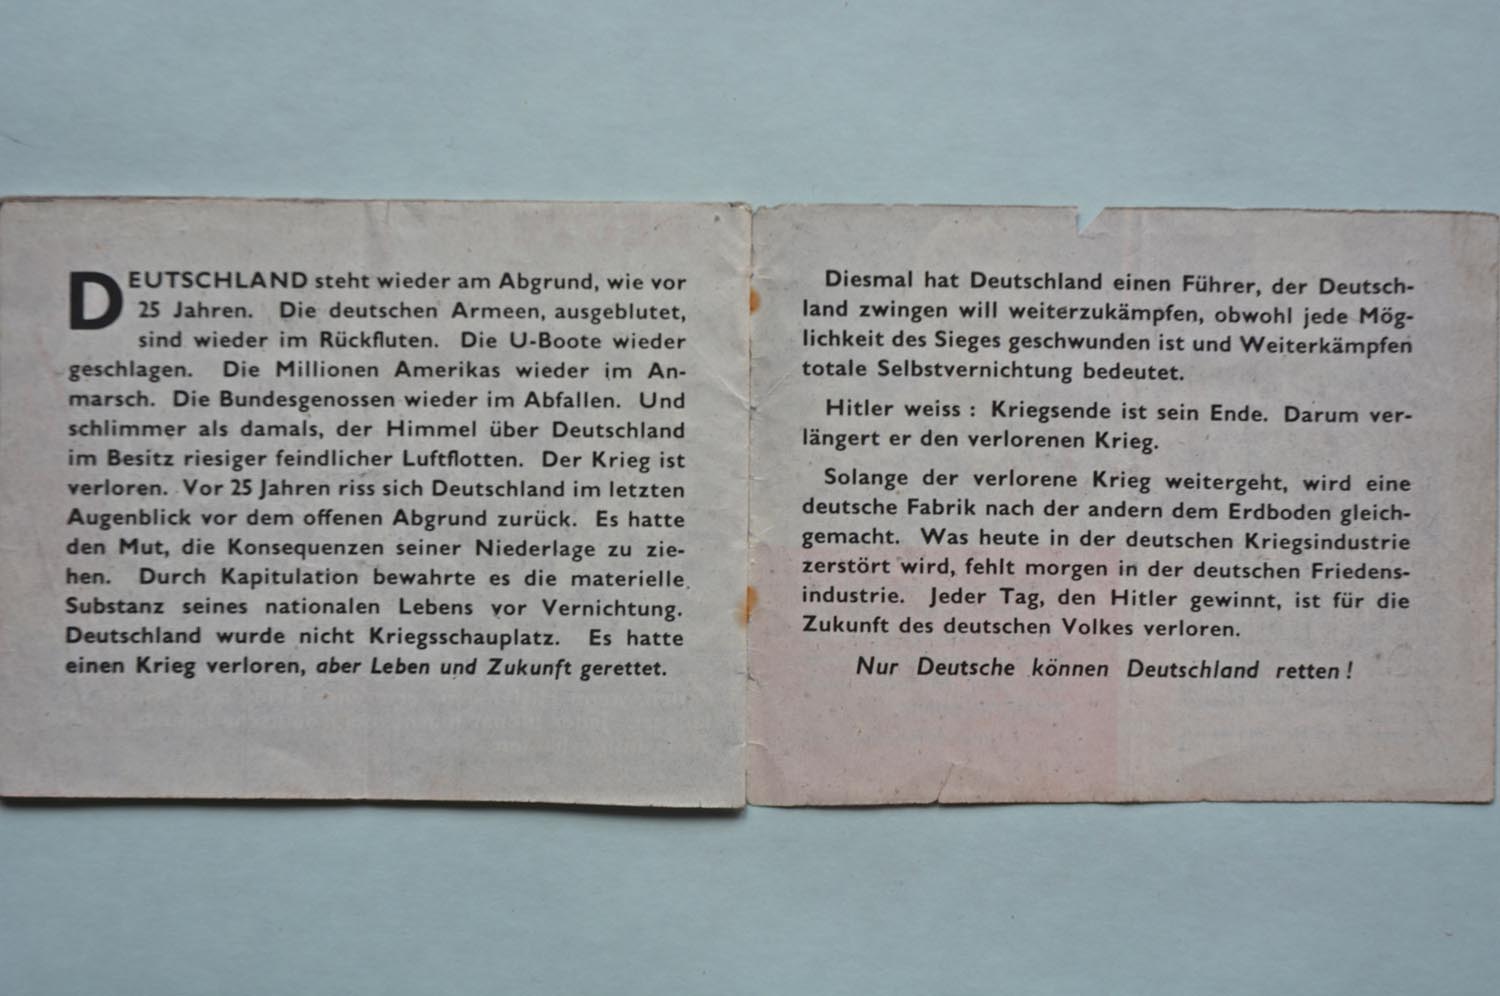 DEUTSCHLAND steht wieder am Abgrund, wie vor
25 Jahren. Die deutschen Armeen, ausgeblutet,
sind wieder im Rückfluten. Die U-Boote wieder
geschlagen. Die Millionen Amerikas wieder im An-
marsch. Die Bundesgenossen wieder im Abfallen. Und
schlimmer als damals, der Himmel über Deutschland
im Besitz riesiger feindlicher Luftflotten. Der Krieg ist
verloren. Vor 25 Jahren riss sich Deutschland im letzten
Augenblick vor dem offenen Abgrund zurück. Es hatte
den Mut, die Konsequenzen seiner Niederlage zu zie-
hen. Durch Kapitulation bewahrte es die materielle
Substanz seines nationalen Lebens vor Vernichtung.
Deutschland wurde nicht Kriegsschauplatz. Es hatte
einen Krieg verloren, aber Leben und Zukunft gerettet.
Diesmal hat Deutschland einen Führer, der Deutsch-
land zwingen will weiterzukämpfen, obwohl jede Mög-
lichkeit des Sieges geschwunden ist und Weiterkämpfen
totale Selbstvernichtung bedeutet.
Hitler weiss : Kriegsende ist sein Ende. Darum ver-
längert er den verlorenen Krieg.
Solange der verlorene Krieg weitergeht, wird eine
deutsche Fabrik nach der andern dem Erdboden gleich-
gemacht. Was heute in der deutschen Kriegsindustrie
zerstört wird, fehlt morgen in der deutschen Friedens-
industrie. Jeder Tag, den Hitler gewinnt, ist für die
Zukunft des deutschen Volkes verloren.
Nur Deutsche können Deutschland retten !